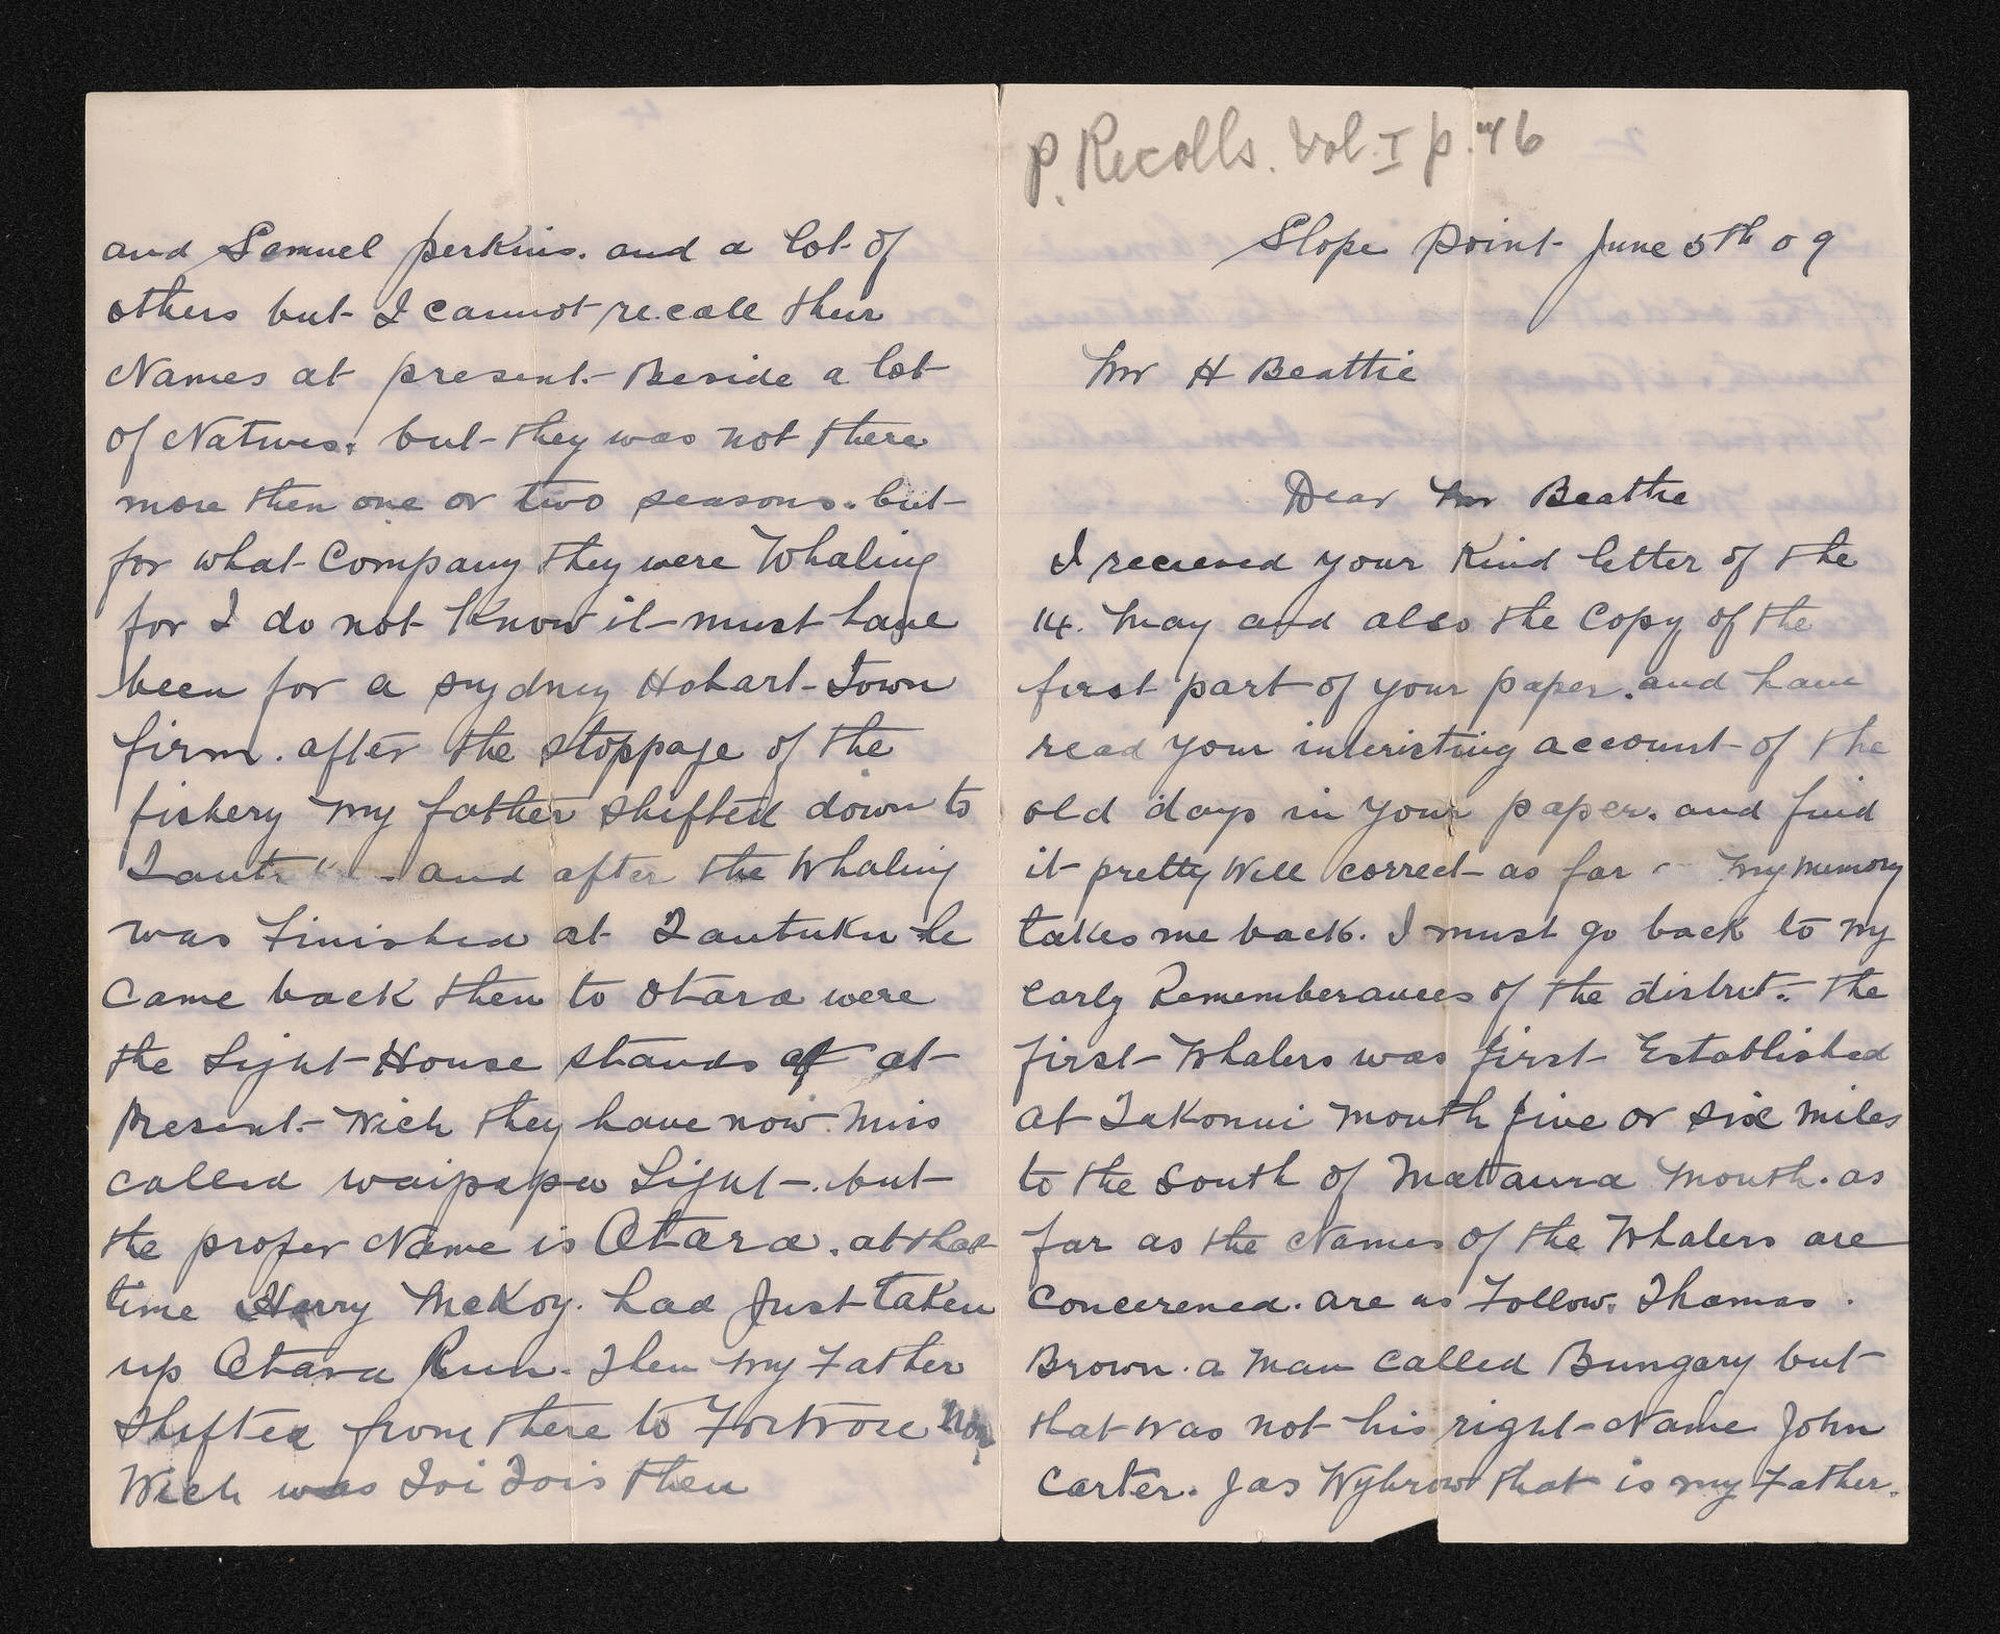 P. Recolls. Vol. I p. 46
Slope Point June 5th 09
Mr H Beattie
Dear Mr Beattie
I recieved your Kind letter of the
14. May and also the Copy of the
first part of your paper. and have
read your interisting account of the
old days in your paper. and find
it pretty Well correct as far my memory
takes me back. I must go back to my
Early Rememberances of the distrct. the
first Whalers was first Established
at Takonui mouth five or six miles
to the South of Mataura Mouth. as
far as the Names of the Whalers are
Concerened. are as Follow. Thomas.
Brown. a Man Called Bungary but
that was not his right Name John
Carter. Jas Wybrow that is my Father.
and Samuel Perkins. and a lot of
others but I cannot recall their
Names at present. Beside a lot
of Natives. but they was not there
more then one or two seasons. but
for what Company they were Whaling
for I do not Know it must have
been for a Sydney Hobart Town
firm. after the stoppage of the
fishery my father shifted down to
and after the Whaling
was Finished at Tautuku he
Came back then to Otara were
the Light House stands at at
Present. Wich they have now Miss
Called waipapa Light. but
the proper Name is Otara. at that
time Harry McKoy. had Just taken
up Otara Run. Then my Father
Shifted from there to Fortrose Now
Wich was Toi Tois then